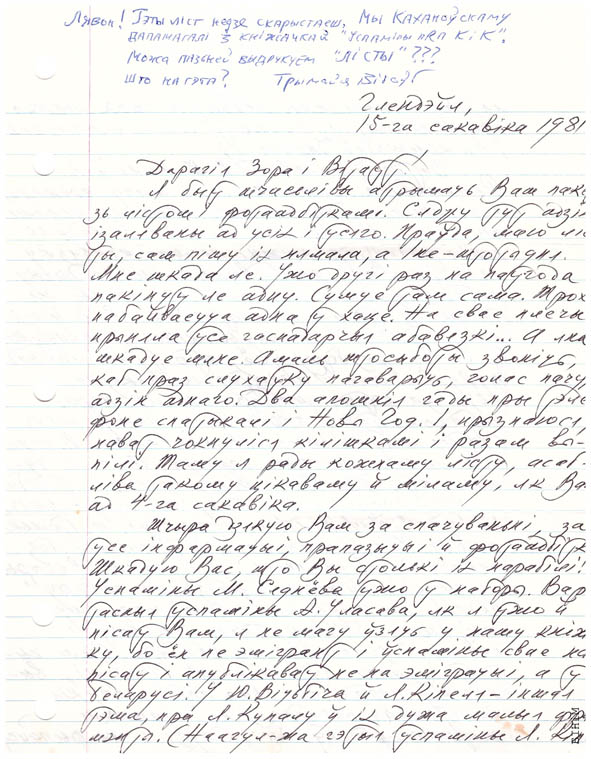 Лявон! Гэты ліст недзе скарыстаеш, Мы Каханоўскаму
дапамагалі з кніжачкай "Успаміны пра КіК".
Можа пазьней выдрукуем "Лісты"???
Што на гэта? Трымайся Вітаўт
Глендэйл,
15-га сакавіка 1981
Дарагія Зора і Вітаўт!
Я быў шчасьлівы атрымаць Вам паку
зь лістом і фотаадбіткамі. Сяджу тут адзін
ізаляваны ад усіх і ўсяго. Праўда, маю ліс
ты, сам пішу іх нямала, а не-што
Мне шкада яе. Ужо другі раз на паўгода
пакінуў яе адну. Сумуе там сама. Трох
пабайваецца адна ў хаце. На свае плечы
прыняла ўсе гаспадарчыя абавязкі... А яна
шкадуе мяне. Амаль штосыботы звоніць,
каб праз слухаўку пагаварыць, голас пачу
адзін аднаго. Два апошнія гады пры тэле
фоне спатыкалі і Новы Год. І, прызнаюся,
нават чокнуліся кілішкамі і разам вы-
пілі. Таму я рады кожнаму лісту, асаб-
ліва такому цікаваму й міламу, як Ва
ад 4-га сакавіка.
Шчыра дзякую Вам за спачуваньні, за
ўсе інфармацыі, прапазыцыі й фотаадбітк
Шкадую Вас, што Вы столькі іх нарабілі!
Успаміны М. Сяднёва ўжо ў наборы. Вар
тасныя ўспаміны А. Уласава, як я ўжо й
пісаў Вам, я не магу ўзяць у нашу кніж
ку, бо ён не эмігрант і ўспаміны свае на
пісаў і апублікаваў не на эміграцыі, а ў
Беларусі. У Ю. Віцьбіча й Л. Кіпеля - іншая
тэма, пра Я. Купалу й іх дужа малыя фра
мэнты. (Наагул-жа гэтыя ўспаміны Л. Кі